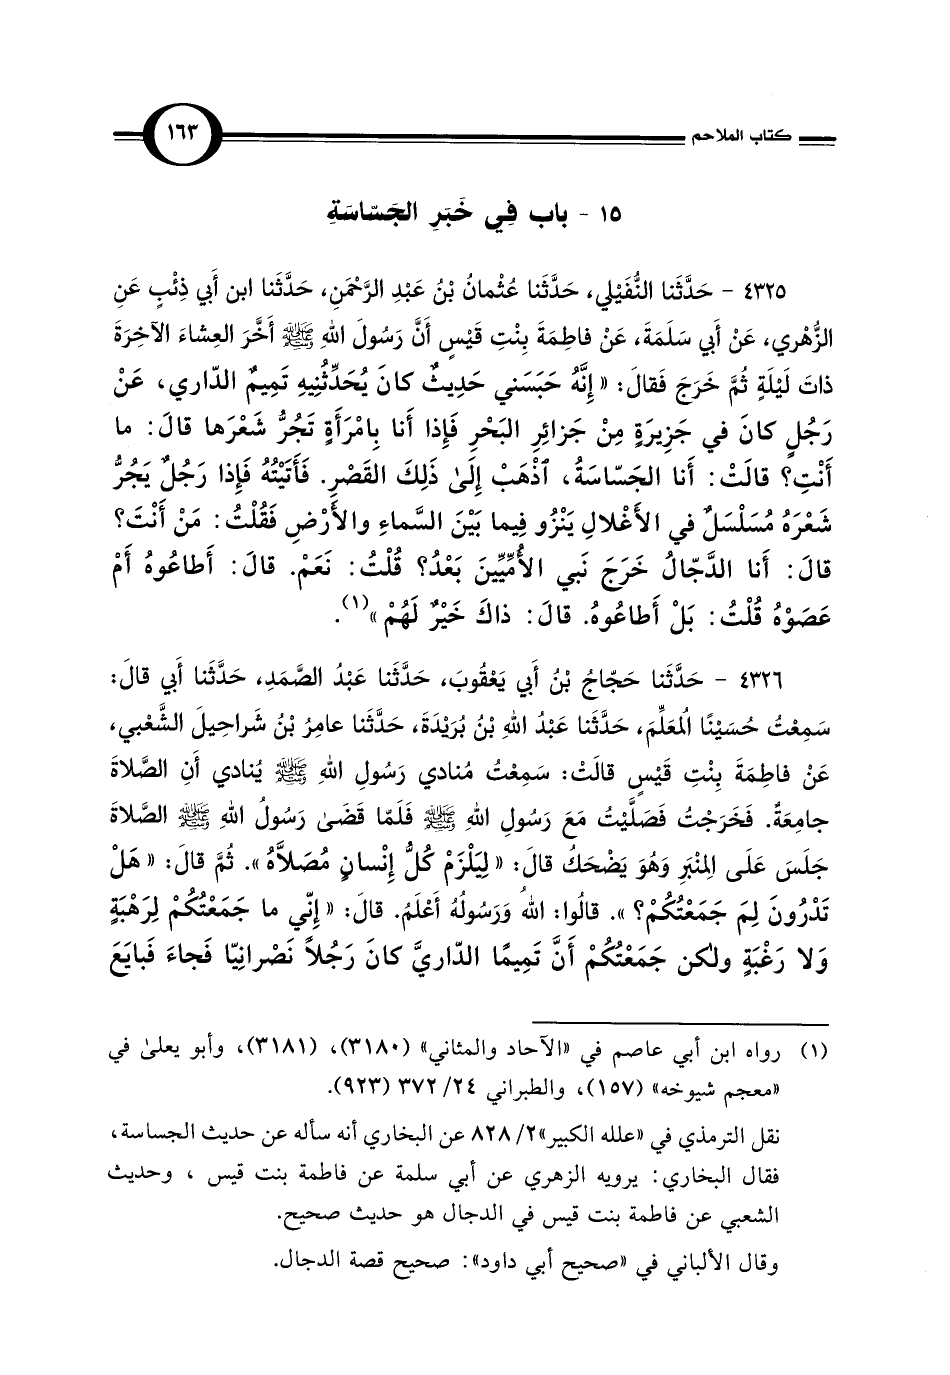 كتاب الملاحم
١٦٣
١٥ - باب فِي خَبَرِ الجَسّاسَةِ
٤٣٢٥ - حَدَّثَنا النُّفَيْلي، حَدَّثَنا عُثْمانُ بْنُ عَبْدِ الرَّحْمَنِ، حَدَّثَنا ابن أَبي ذِئْبٍ عَنِ
الزُّهْري، عَنْ أَبي سَلَمَةَ، عَنْ فاطِمَةَ بِنْتِ قَيْسٍ أَنَّ رَسُولَ اللهِ ﷺ أَخَّرَ العِشاءَ الآخِرَةَ
ذاتَ لَيْلَةٍ ثُمَّ خَرَجَ فَقالَ: « إِنَّهُ حَبَسَني حَدِيثٌ كانَ يُحَدِّثُنِيهِ تَمِيمٌ الدّاري، عَنْ
رَجُلٍ كانَ في جَزِيرَةٍ مِنْ جَزائِرِ البَحْرِ فَإِذا أَنا بِامْرَأَةٍ تَجُرُّ شَعْرَها قالَ: ما
أَنْتِ؟ قالَتْ: أَنا الجَسّاسَةُ، ٱذْهَبْ إِلَىٰ ذَلِكَ القَصْرِ. فَأَتَيْتُهُ فَإِذا رَجُلٌ يَجُرُّ
شَعْرَهُ مُسَلْسَلٌ في الأَغْلالِ يَنْزُو فِيما بَيْنَ السَّماءِ والأَرْضِ فَقُلْتُ: مَنْ أَنْتَ؟
قالَ: أَنا الدَّجّالُ خَرَجَ نَبي الأُمِّيِّينَ بَعْدُ؟ قُلْتُ: نَعَمْ. قالَ: أَطاعُوهُ أَمْ
عَصَوْهُ قُلْتُ: بَلْ أَطاعُوهُ. قالَ: ذاكَ خَيْرٌ لَهُمْ »(١).
٤٣٢٦ - حَدَّثَنا حَجّاجُ بْنُ أَبي يَعْقُوبَ، حَدَّثَنا عَبْدُ الصَّمَدِ، حَدَّثَنا أَبي قالَ:
سَمِعْتُ حُسَيْنًا المُعَلِّمَ، حَدَّثَنا عَبْدُ اللهِ بْنُ بُرَيْدَةَ، حَدَّثَنا عامِرُ بْنُ شَراحِيلَ الشَّعْبي،
عَنْ فاطِمَةَ بِنْتِ قَيْسٍ قالَتْ: سَمِعْتُ مُنادي رَسُولِ اللهِ ﷺ يُنادي أَنِ الصَّلاةَ
جامِعَةٌ. فَخَرَجْتُ فَصَلَّيْتُ مَعَ رَسُولِ اللهِ ﷺ فَلَمّا قَضَىٰ رَسُولُ اللهِ ﷺ الصَّلاةَ
جَلَسَ عَلَى المِنْبَرِ وَهُوَ يَضْحَكُ قالَ: « لِيَلْزَمْ كُلُّ إِنْسانٍ مُصَلاَّهُ ». ثُمَّ قالَ: « هَلْ
تَدْرُونَ لِمَ جَمَعْتُكُمْ؟ ». قالُوا: اللهُ وَرَسُولُهُ أَعْلَمُ. قالَ: « إِنّي ما جَمَعْتُكُمْ لِرَهْبَةٍ
وَلا رَغْبَةٍ ولكن جَمَعْتُكُمْ أَنَّ تَمِيمًا الدّاريَّ كانَ رَجُلاً نَصْرانِيّا فَجاءَ فَبايَعَ
(١) رواه ابن أبي عاصم في «الآحاد والمثاني» (٣١٨٠)، (٣١٨١)، وأبو يعلىٰ في
«معجم شيوخه» (١٥٧)، والطبراني ٢٤/ ٣٧٢ (٩٢٣).
نقل الترمذي في «علله الكبير»٢/ ٨٢٨ عن البخاري أنه سأله عن حديث الجساسة،
فقال البخاري: يرويه الزهري عن أبي سلمة عن فاطمة بنت قيس ، وحديث
الشعبي عن فاطمة بنت قيس في الدجال هو حديث صحيح.
وقال الألباني في «صحيح أبي داود»: صحيح قصة الدجال.